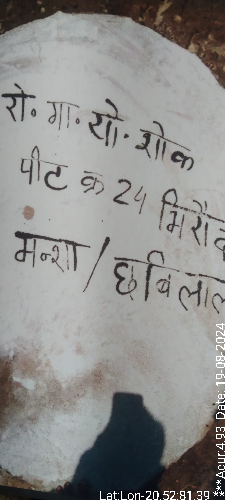 रो. गा. यो. शोक
पीट क्र 24
मन्शा / छबि लाल
Lat:Lon-20.52:81.39
***Acur:4.93 Date: 19-08-2024